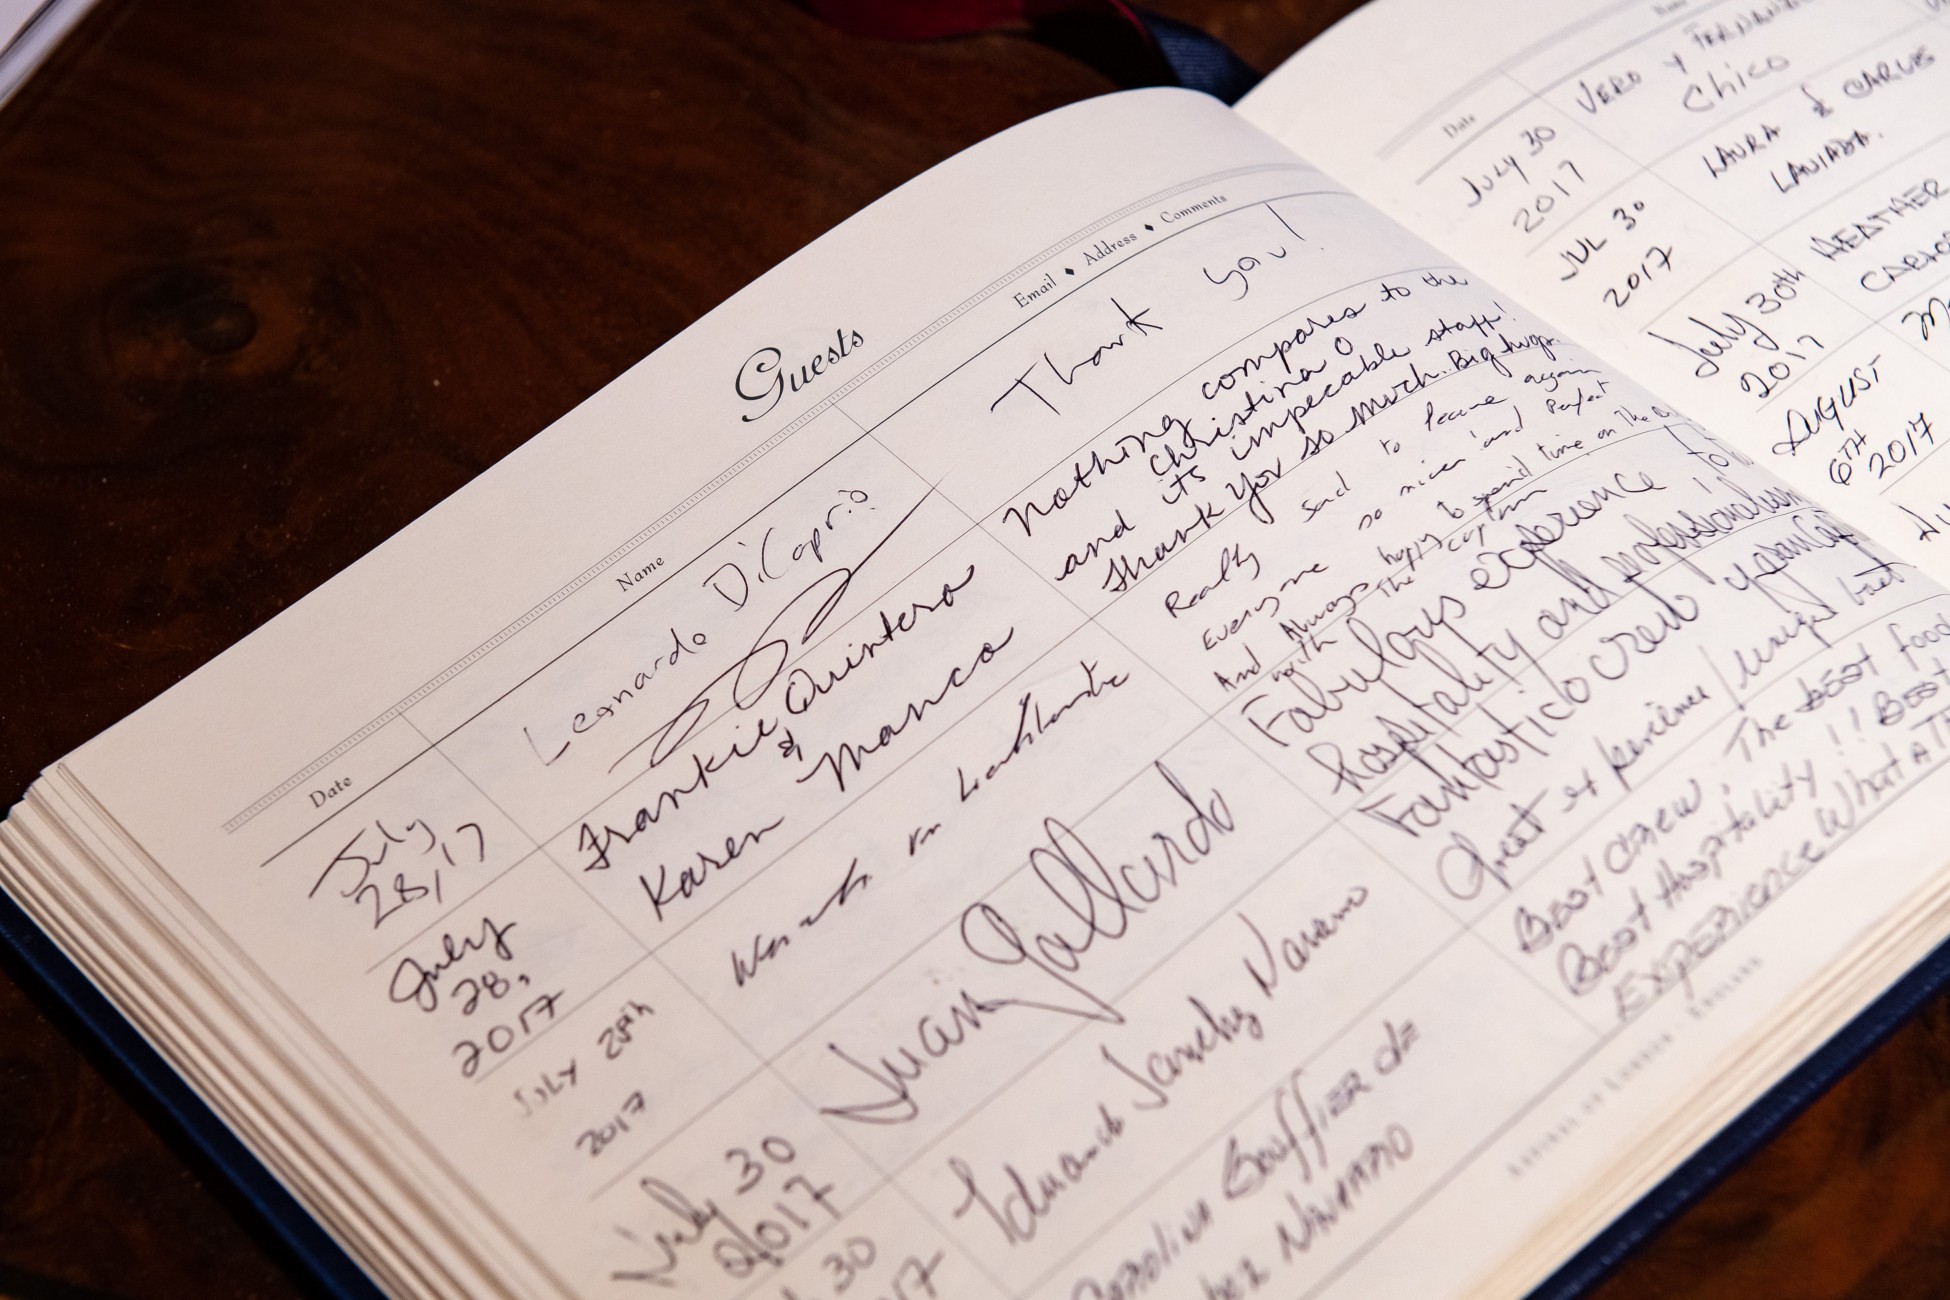 Guests
Date
Name
Email ♦ Address ♦ Comments
July
28, 17
Leonardo DiCaprio
Thank you!
July
28,
2017
Frankie Quintero
&
Karen Manca
Nothing compares to the
Christina O
and its impecable staff!
Thank you so much. Big hugs.
July 28th
2017
Really sad to leave again
Everyone so nice and Perfect
And Always happy to spend time on the
with The captain
July 30
2017
Juan Gallardo
Fabulous experience
hospitality and professionalism
Fantastico crew y
30
Eduardo Sanchez Navarro
Great experience
Carolina Bouffier de
Navarro
Best crew, The best food
Best Hospitality !! Best
Experience What a
Date
July 30
2017
Vero y
Chico
Jul 30
2017
Laura & Carlos
Laviada.
July 30th
2017
Heather
August
6th
2017